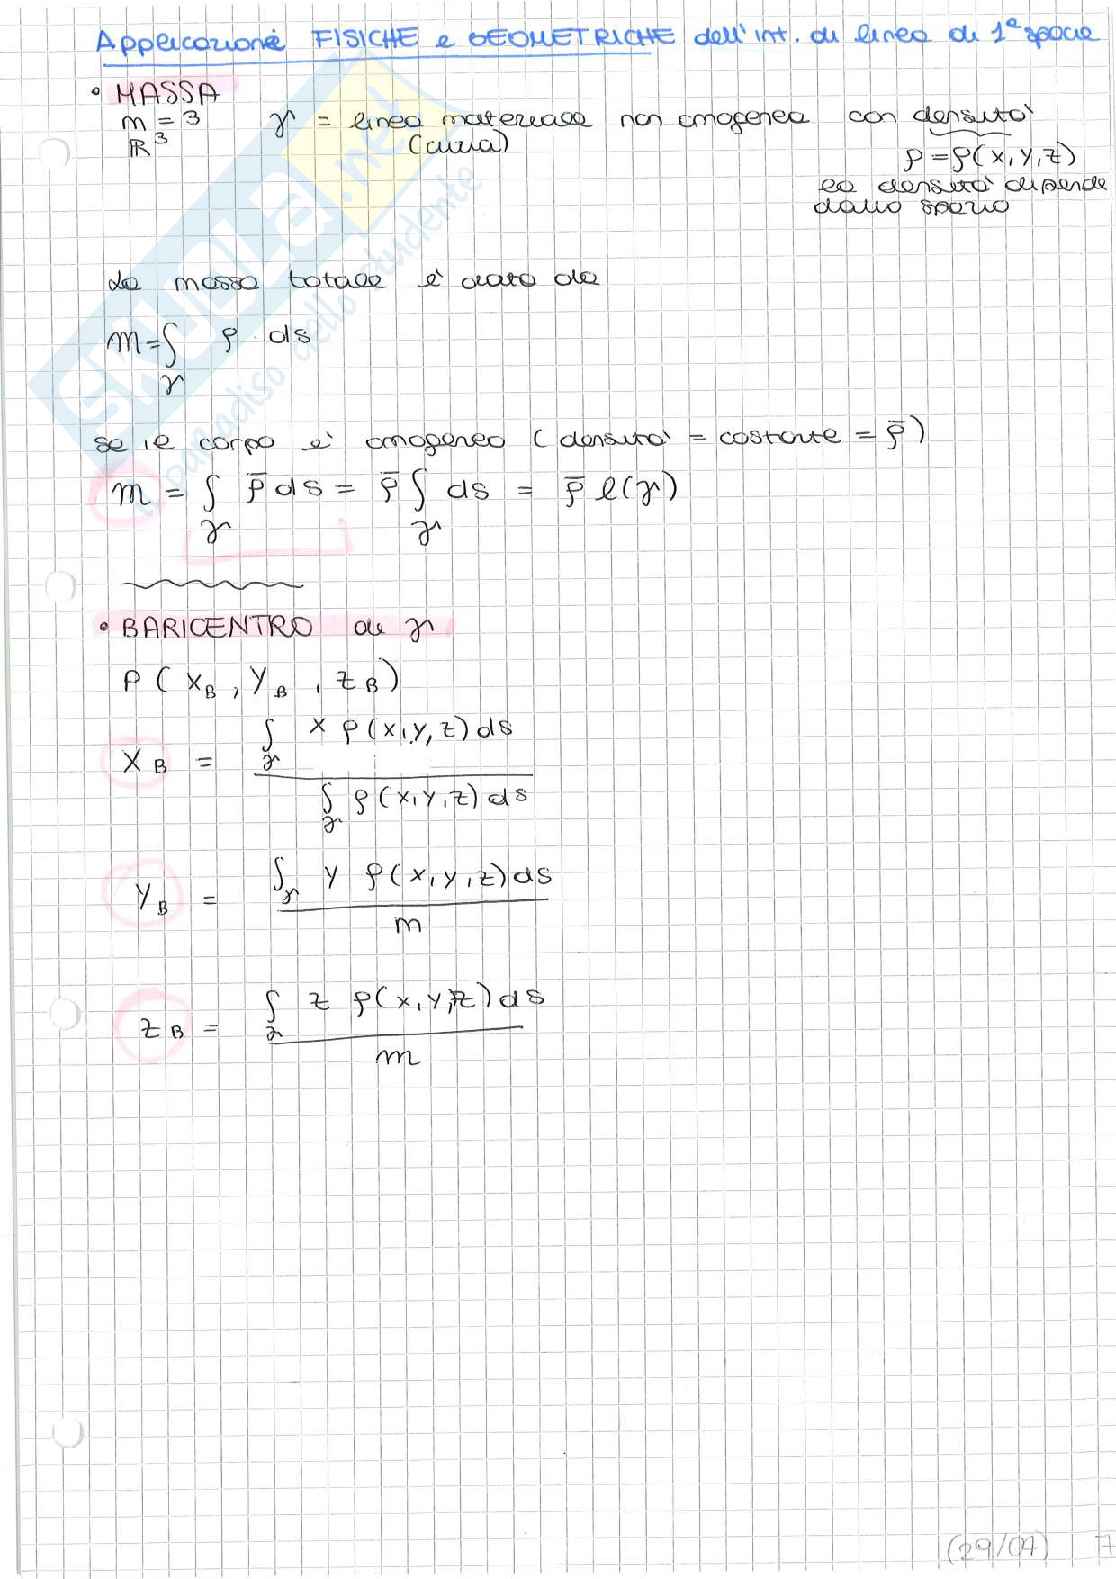 Applicazioni FISICHE e GEOMETRICHE dell'int. di linea di 1ª specie
• MASSA
n = 3 γ = linea materiale non omogenea con densità
ℝ³ (curva) ρ = ρ(x, y, z)
la densità dipende
dallo spazio
La massa totale è data da
m = ∫γ ρ ds
se il corpo è omogeneo (densità = costante = ρ̄)
m = ∫γ ρ̄ ds = ρ̄ ∫γ ds = ρ̄ l(γ)
• BARICENTRO di γ
P (xB, yB, zB)
xB = ∫γ x ρ(x, y, z) ds
∫γ ρ(x, y, z) ds
yB = ∫γ y ρ(x, y, z) ds
m
zB = ∫γ z ρ(x, y, z) ds
m
(29/04) 7
SKUOLA.net
il paradiso dello studente